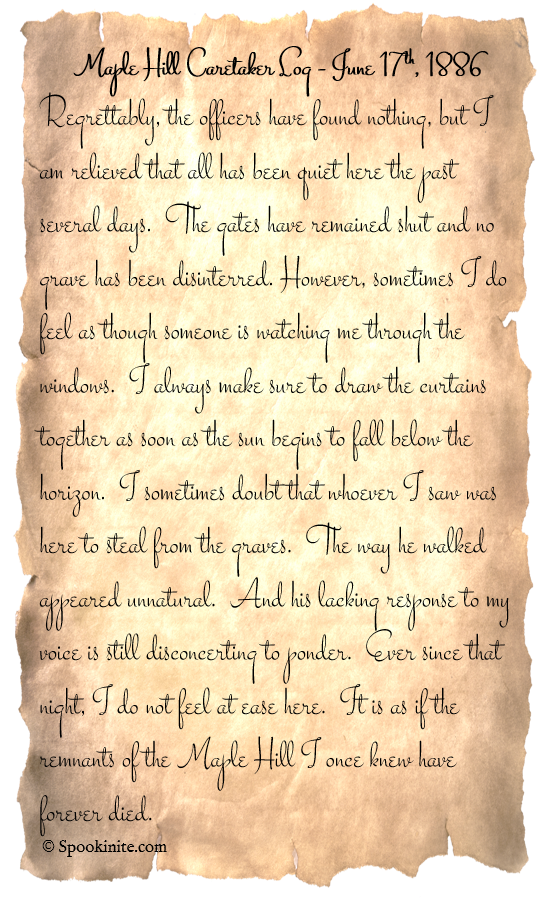 Maple Hill Caretaker Log - June 17th, 1886
Regrettably, the officers have found nothing, but I
am relieved that all has been quiet here the past
several days.  The gates have remained shut and no
grave has been disinterred. However, sometimes I do
feel as though someone is watching me through the
windows.  I always make sure to draw the curtains
together as soon as the sun begins to fall below the
horizon.  I sometimes doubt that whoever I saw was
here to steal from the graves.  The way he walked
appeared unnatural.  And his lacking response to my
voice is still disconcerting to ponder.  Ever since that
night, I do not feel at ease here.  It is as if the
remnants of the Maple Hill I once knew have
forever died.
© Spookinite.com